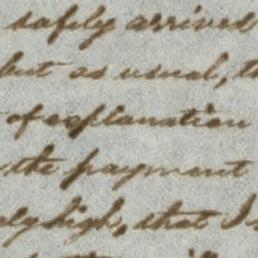 safely arrived
but as usual,
of explanation
the payment
high, that I